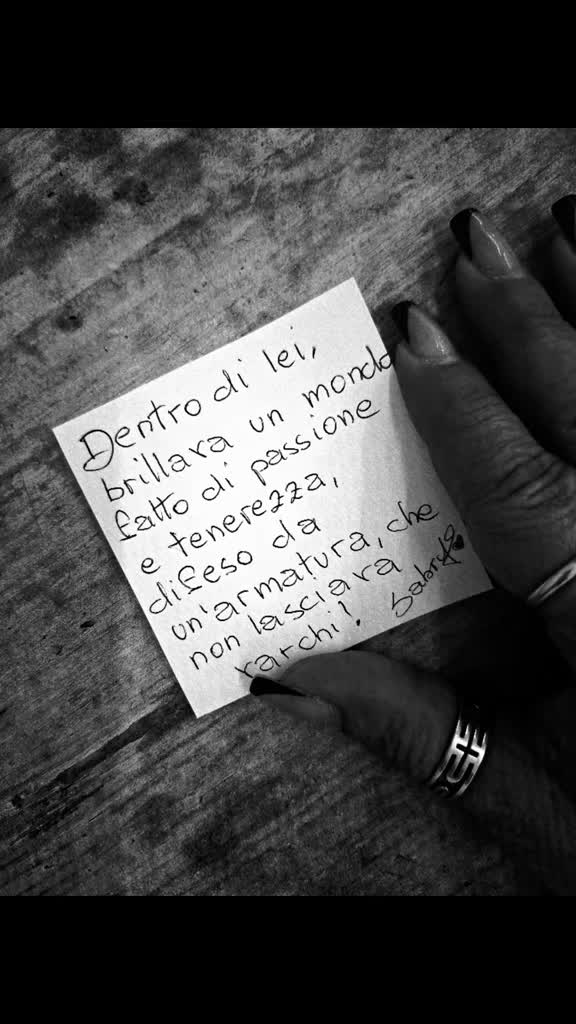 Dentro di lei,
brillava un mondo
fatto di passione
e tenerezza,
difeso da
un'armatura, che
non lasciava
varchi!